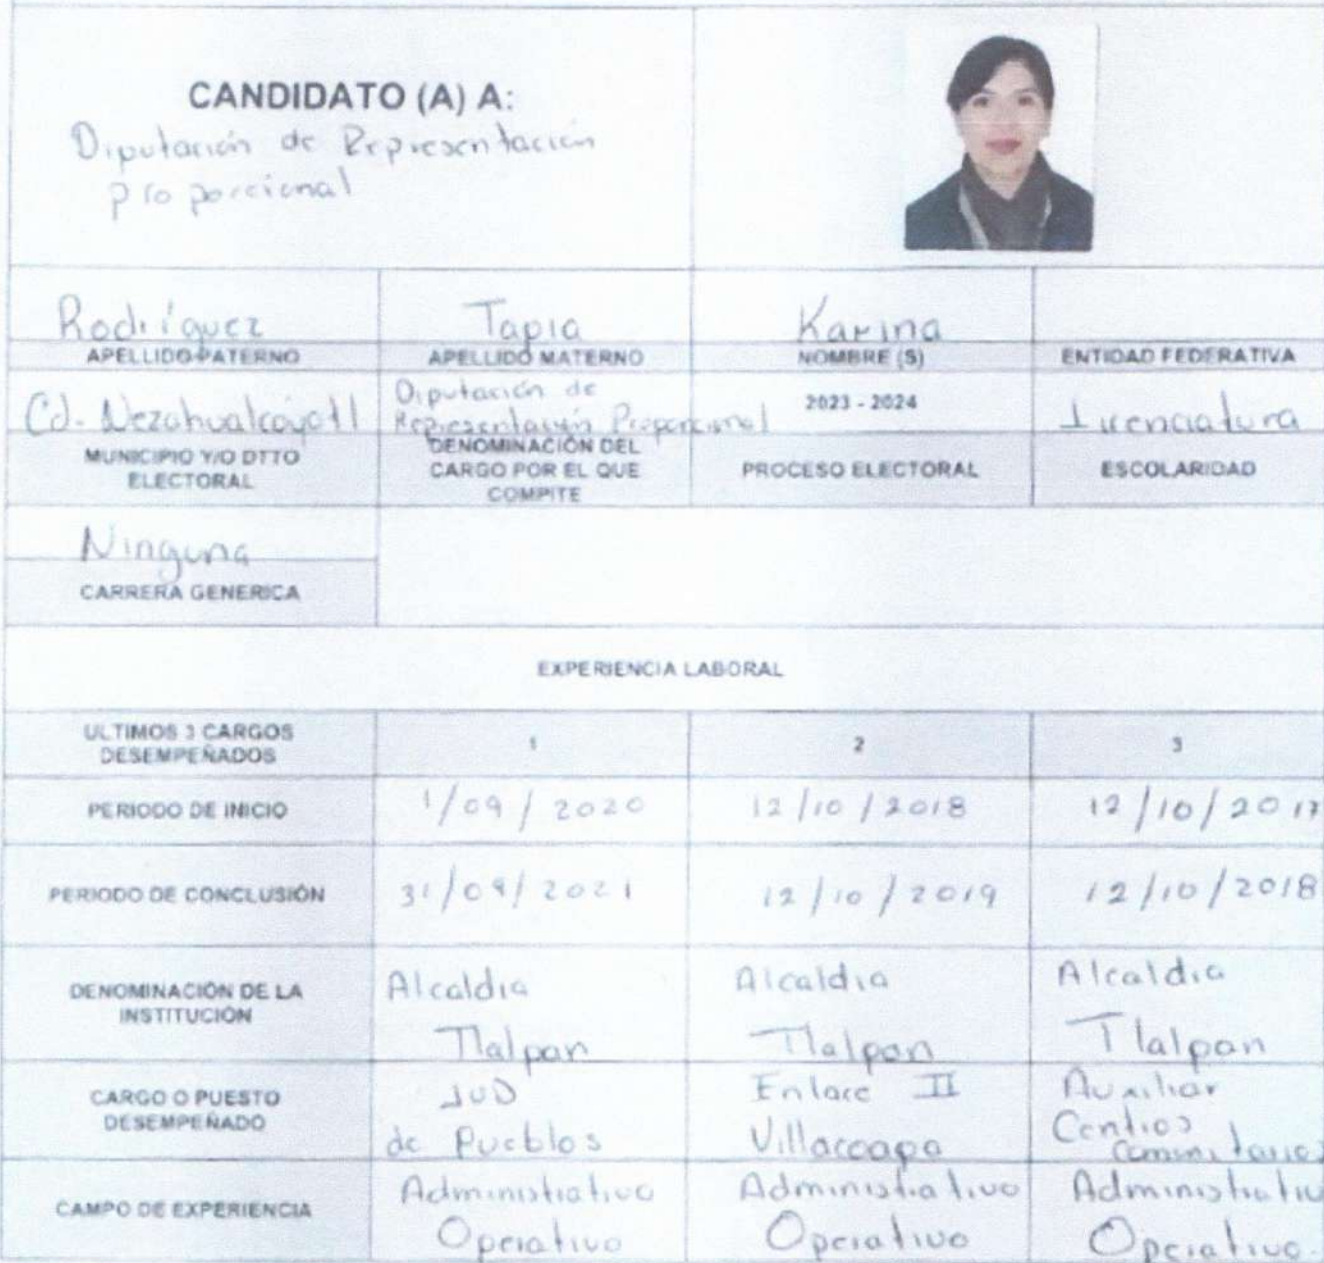 CANDIDATO (A) A:
Diputación de Representación
proporcional
Rodríguez Tapia Karina
APELLIDO PATERNO APELLIDO MATERNO NOMBRE (S) ENTIDAD FEDERATIVA
Cd. Nezahualcoyotl Diputación de Representación Proporcional 2023 - 2024 Licenciatura
MUNICIPIO Y/O DTTO ELECTORAL DENOMINACIÓN DEL CARGO POR EL QUE COMPITE PROCESO ELECTORAL ESCOLARIDAD
Ninguna
CARRERA GENERICA
EXPERIENCIA LABORAL
ULTIMOS 3 CARGOS DESEMPEÑADOS 1 2 3
PERIODO DE INICIO 1/09/2020 12/10/2018 12/10/2017
PERIODO DE CONCLUSIÓN 31/09/2021 12/10/2019 12/10/2018
DENOMINACIÓN DE LA INSTITUCIÓN Alcaldia Tlalpan Alcaldia Tlalpan Alcaldia Tlalpan
CARGO O PUESTO DESEMPEÑADO JUD de Pueblos Enlace II Villacoapa Auxiliar Centros Comunitarios
CAMPO DE EXPERIENCIA Administrativo Operativo Administrativo Operativo Administrativo Operativo.